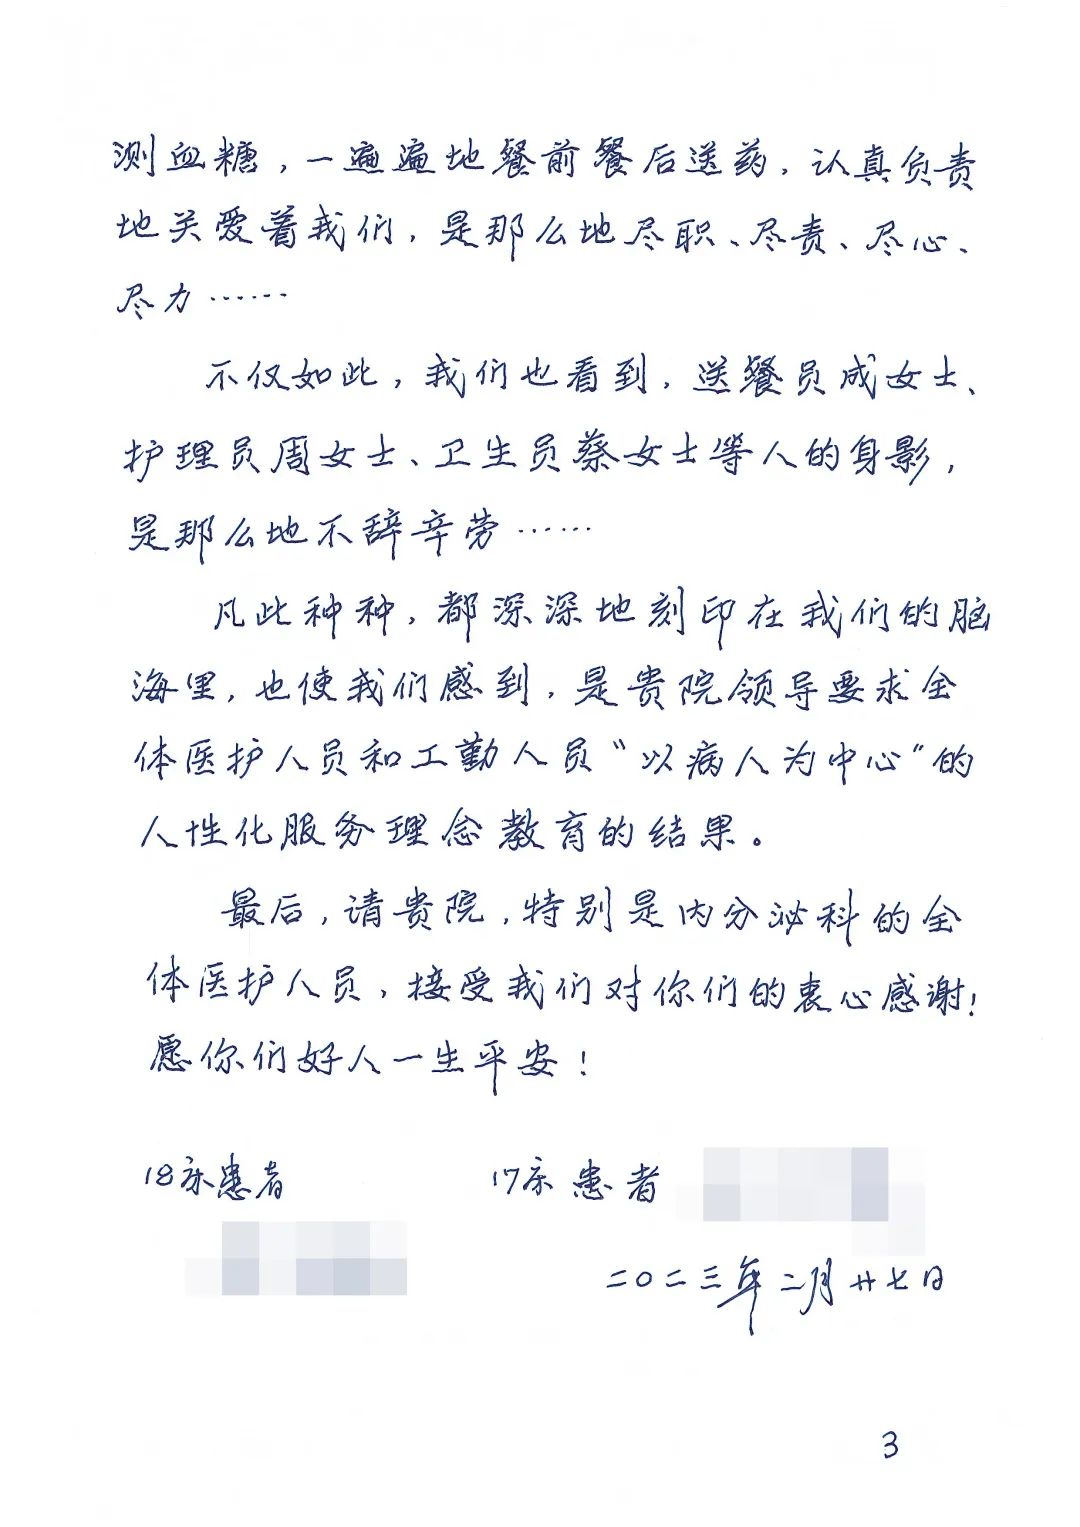 测血糖，一遍遍地餐前餐后送药，认真负责
地关爱着我们，是那么地尽职、尽责、尽心、
尽力……
不仅如此，我们也看到，送餐员成女士、
护理员周女士、卫生员蔡女士等人的身影，
是那么地不辞辛劳……
凡此种种，都深深地刻印在我们的脑
海里，也使我们感到，是贵院领导要求全
体医护人员和工勤人员“以病人为中心”的
人性化服务理念教育的结果。
最后，请贵院，特别是内分泌科的全
体医护人员，接受我们对你们的衷心感谢！
愿你们好人一生平安！
18床患者 17床患者
二〇二三年二月廿七日
3